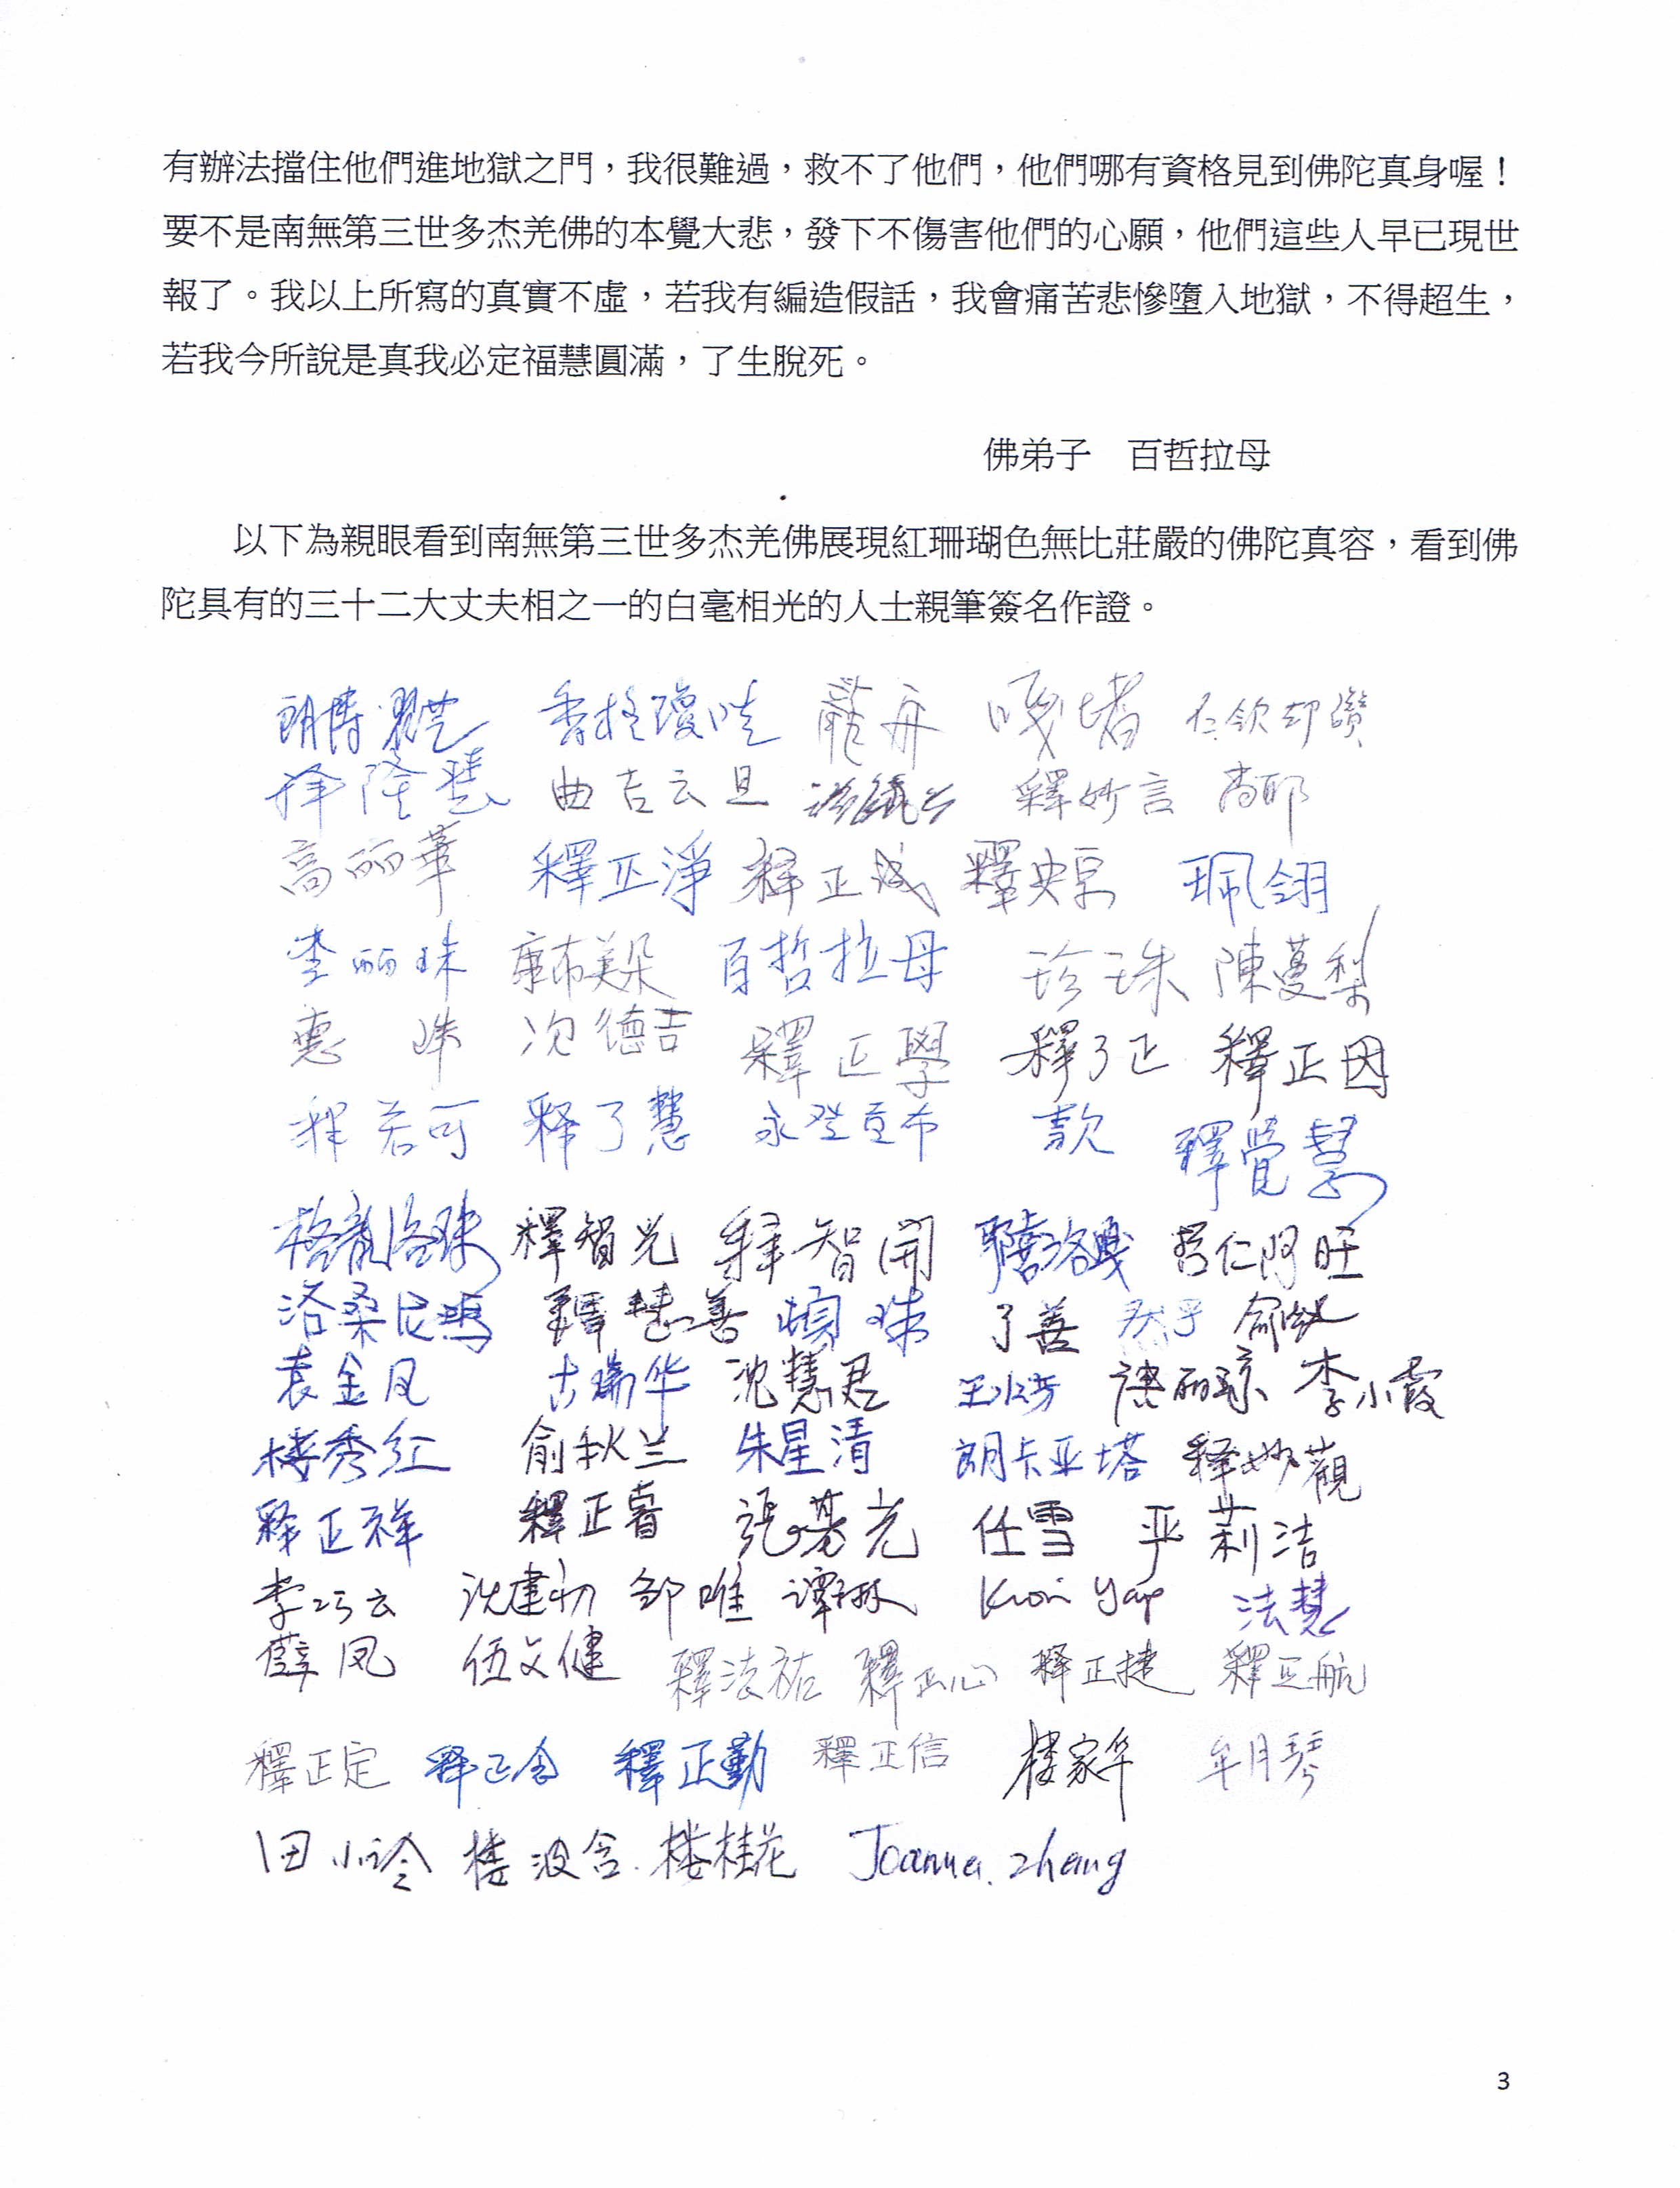 有辦法擋住他們進地獄之門，我很難過，救不了他們，他們哪有資格見到佛陀真身喔！
要不是南無第三世多杰羌佛的本覺大悲，發下不傷害他們的心願，他們這些人早已現世
報了。我以上所寫的真實不虛，若我有編造假話，我會痛苦悲慘墮入地獄，不得超生，
若我今所說是真我必定福慧圓滿，了生脫死。
佛弟子　百哲拉母
以下為親眼看到南無第三世多杰羌佛展現紅珊瑚色無比莊嚴的佛陀真容，看到佛
陀具有的三十二大丈夫相之一的白毫相光的人士親筆簽名作證。
龍舟 嘎堵 仁欽却讚
释隆慧 曲吉云旦 釋妙言
高丽華 釋正淨 释正成 珮翎
李丽珠 康布美朵 百哲拉母 珍珠 陳蔓梨
惠珠 次德吉 釋正學 釋了正 釋正因
释若可 释了慧 永登亘布 釋覺慧
格龍洛珠 釋智光 释智開 耶喜洛嘎 哲仁阿旺
洛桑尼瑪 釋慧善 了善
袁金凤 古瑞华 沈慧君 李小霞
楼秀红 俞秋兰 朱星清 朗卡亚塔 释妙觀
释正祥 釋正睿 任雪 严莉洁
李巧云 沈建初 邹唯 谭琳 法慧
薛凤 伍文健 釋法祐 釋正心 释正捷 釋正航
釋正定 释正念 釋正勤 釋正信 楼家华 牟月琴
田小玲 楼波含 楼桂花 Joanna. Zheng
3